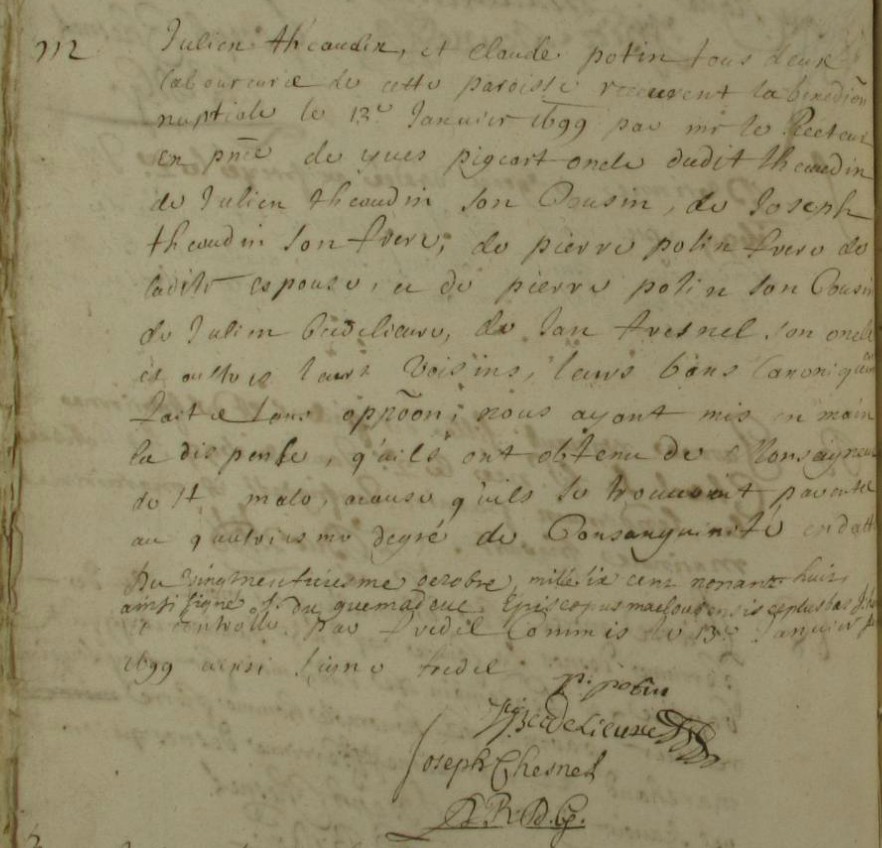 m Julien theaudin, et claude potin tous deux
laboureurs de cette paroisse receurent la benedion
nuptiale le 13e Janvier 1699 par mr le Recteur
en pnce de yves pigeart oncle dudit theaudin
de Julien theaudin son Cousin, de Joseph
theaudin son frere, de pierre potin frere de
ladite espouse, et de pierre potin son Cousin
de Julien Bedelieuvre, de Jan fresnel son oncle
et aultres leurs voisins, leurs bans Canoniquem
faits sans oppoon, nous ayant mis en main
la dispense, qu'ils ont obtenu de Monseigneur
de St malo, acause qu'ils se trouvoient parents
au quatriesme degré de Consanguinité en datte
Du vingtneufiesme octobre mille six cent nonante huit,
ainsi signé f. Du guemadeuc Episcopus macloviensis et plus bas
controllé par fredel Commis le 13e Janvier
1699 ainsi signé fredel
pi: potin
Bedelieuvre
Joseph Chesnel